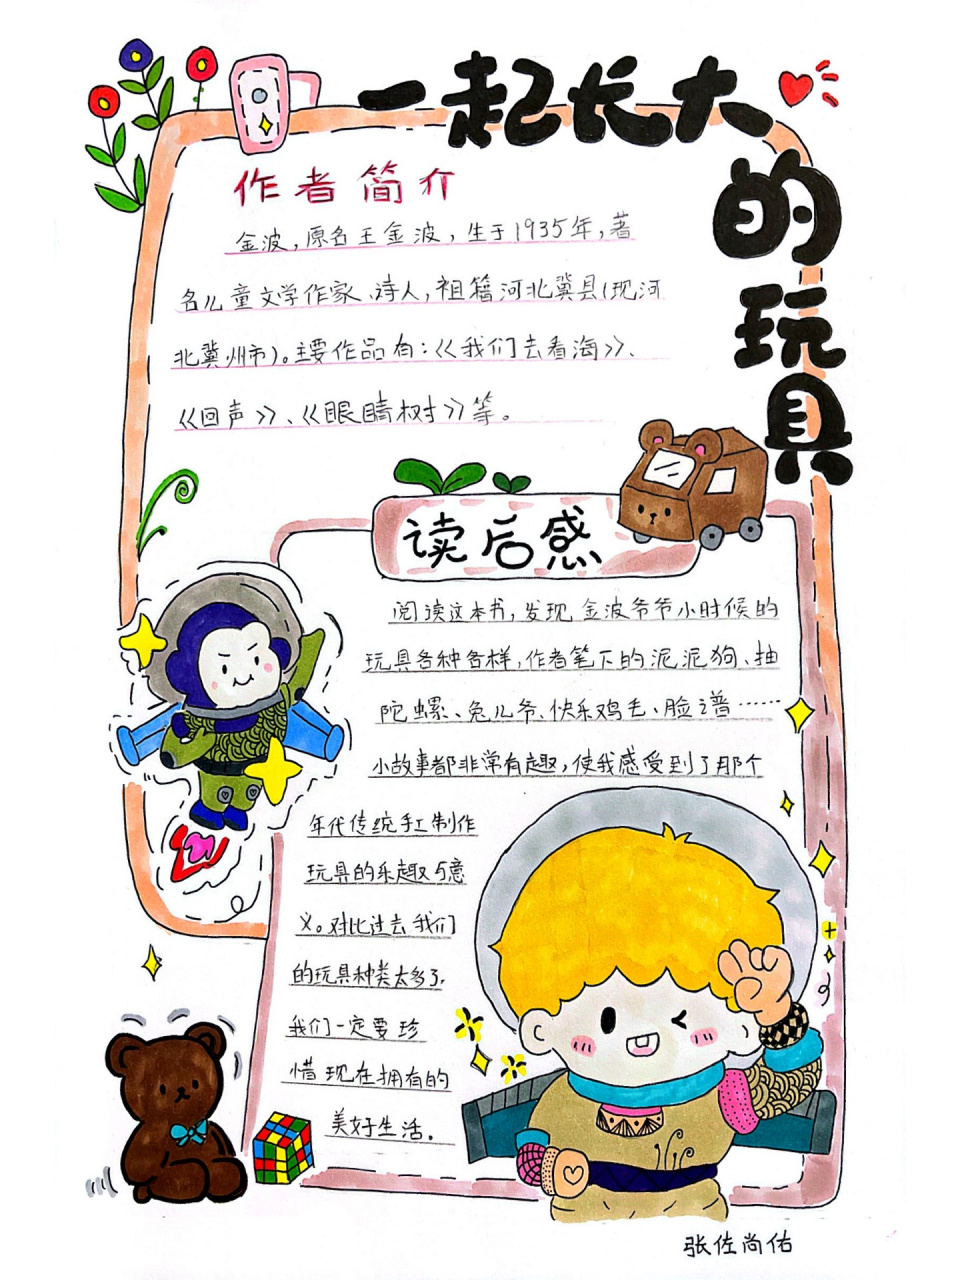 一起长大的玩具
作者简介
金波，原名王金波，生于1935年，著
名儿童文学作家、诗人，祖籍河北冀县(现河
北冀州市)。主要作品有：《我们去看海》、
《回声》、《眼睛树》等。
读后感
阅读这本书，发现金波爷爷小时候的
玩具各种各样，作者笔下的泥泥狗、抽
陀螺、兔儿爷、快乐鸡毛、脸谱……
小故事都非常有趣，使我感受到了那个
年代传统手工制作
玩具的乐趣与意
义。对比过去我们
的玩具种类太多了，
我们一定要珍
惜现在拥有的
美好生活。
张佐尚佑